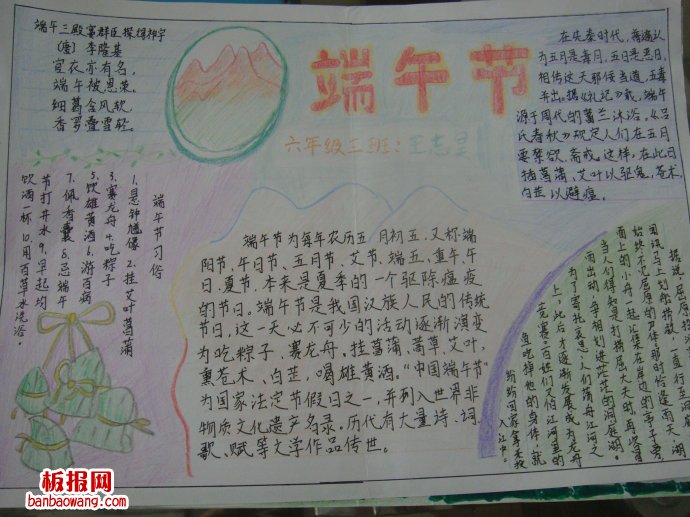 端午节
六年级三班：王志
端午三殿宴群臣探得神字
(唐) 李隆基
宜衣亦有名，
端午被恩荣。
细葛含风软，
香罗叠雪轻。
在先秦时代，普遍认
为五月是毒月，五日是恶日，
相传这天邪佞当道，五毒
并出。据《礼记》载，端午
源于周代的蓄兰沐浴。《吕
氏春秋》规定人们在五月
要禁欲、斋戒。这样，在此日
插菖蒲、艾叶以驱鬼，苍术、
白芷以避瘟。
端午节习俗
1.悬钟馗像 2.挂艾叶菖蒲
3.赛龙舟 4.吃粽子
5.饮雄黄酒 6.游百病
7.佩香囊 8.忌端午
节打井水 9.早起均
饮酒一杯 10.用百草水洗浴。
端午节为每年农历五月初五，又称端
阳节、午日节、五月节、艾节、端五、重午、午
日、夏节，本来是夏季的一个驱除瘟疫
的节日。端午节是我国汉族人民的传统
节日，这一天必不可少的活动逐渐演变
为吃粽子，赛龙舟，挂菖蒲、蒿草、艾叶，
熏苍术、白芷，喝雄黄酒。"中国端午节"
为国家法定节假日之一，并列入世界非
物质文化遗产名录。历代有大量诗、词、
歌、赋等文学作品传世。
据说，屈原投
面上的小舟一起汇集在岸边的亭子旁。
当人们得知是打捞屈大夫时，再次冒
雨出动，争相划进茫茫的洞庭湖。
为了寄托哀思，人们荡舟江河之
上，此后才逐渐发展成为龙舟
竞赛。百姓们又怕江河里的
鱼吃掉他的身体，就
纷纷回家拿来米
入江中，
板报网
banbaowang.com